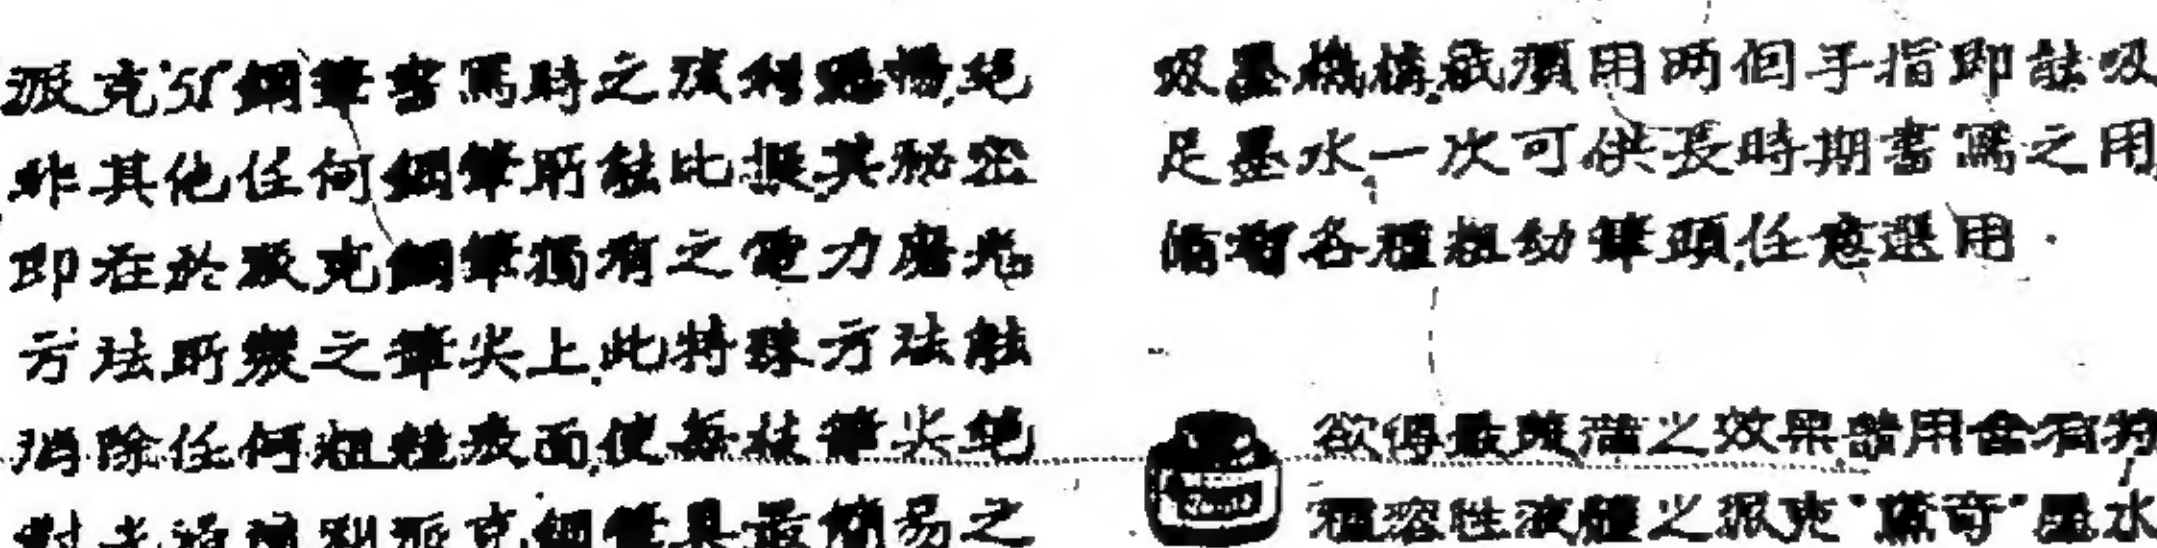 派克"51"鋼筆書寫時之流利順暢,絕
非其他任何鋼筆所能比擬,其秘密
即在於派克鋼筆獨有之電力磨光
方法所製之筆尖上.此特殊方法能
消除任何粗糙表面,使每枝筆尖絕
對光滑 派克鋼筆具最簡易之
吸墨機構.祇須用兩個手指即能吸
足墨水,一次可供長時期書寫之用,
備有各種粗幼筆頭,任意選用.
欲得最美滿之效果請用含有特
種溶性液體之派克"驚奇"墨水